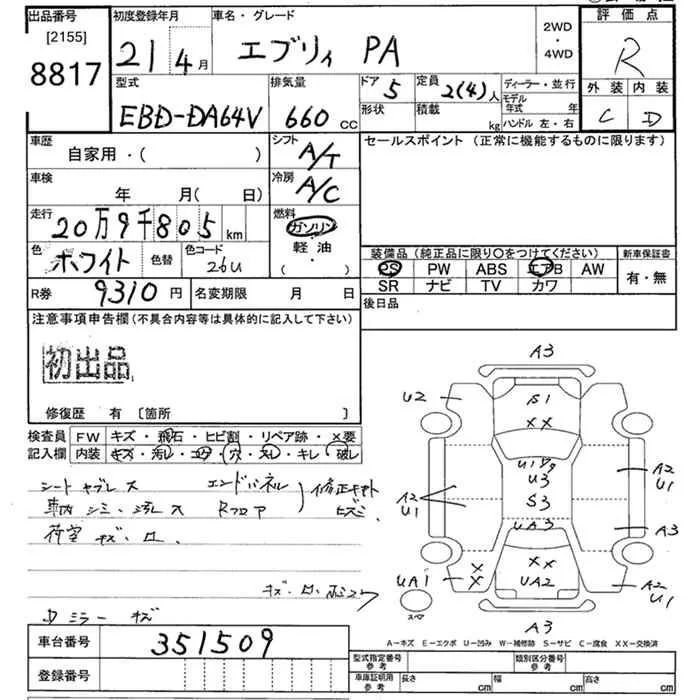 出品番号
[2155]
8817
初度登録年月
21 4月
車名・グレード
エブリィ PA
2WD
・
4WD
評価点
R
外装 内装
C D
型式
EBD-DA64V
排気量
660 cc
ドア 5
形状
定員 2(4)人
積載 kg
ディーラー・並行
モデル年式 年
ハンドル 左・右
車歴
自家用・( )
シフト
A/T
車検
年 月( 日)
冷房
A/C
走行
20万9千805 km
燃料
ガソリン
軽油
( )
色 ホワイト
色替
色コード
26U
R券 9310円
名変期限 月 日
セールスポイント (正常に機能するものに限ります)
装備品 (純正品に限り○をつけてください)
新車保証書
PS PW ABS エアB AW
SR ナビ TV カワ
有・無
後日品
注意事項申告欄(不具合内容等は具体的に記入して下さい)
初出品
修復歴 有 [箇所 ]
検査員記入欄
FW キズ・飛石・ヒビ割・リペア跡・×要
内装 キズ・汚レ・コゲ・穴・スレ・キレ・破レ
シートヤブレ大
エンドパネル
車内シミ・汚レ大
Rフロア
荷室キズ・ロ
ミラー キズ
車台番号
351509
登録番号
A3
U2
S1
XX
U3
S3
UA3
XX
UA2
A2
U1
A2
U1
A3
UA1
XX
A2
U1
スペア
A3
A-キズ E-エクボ U-凹み W-補修跡 S-サビ C-腐食 XX-交換済
型式指定番号
参考
類別区分番号
参考
車庫証明用
参考
長さ cm
幅 cm
高さ cm